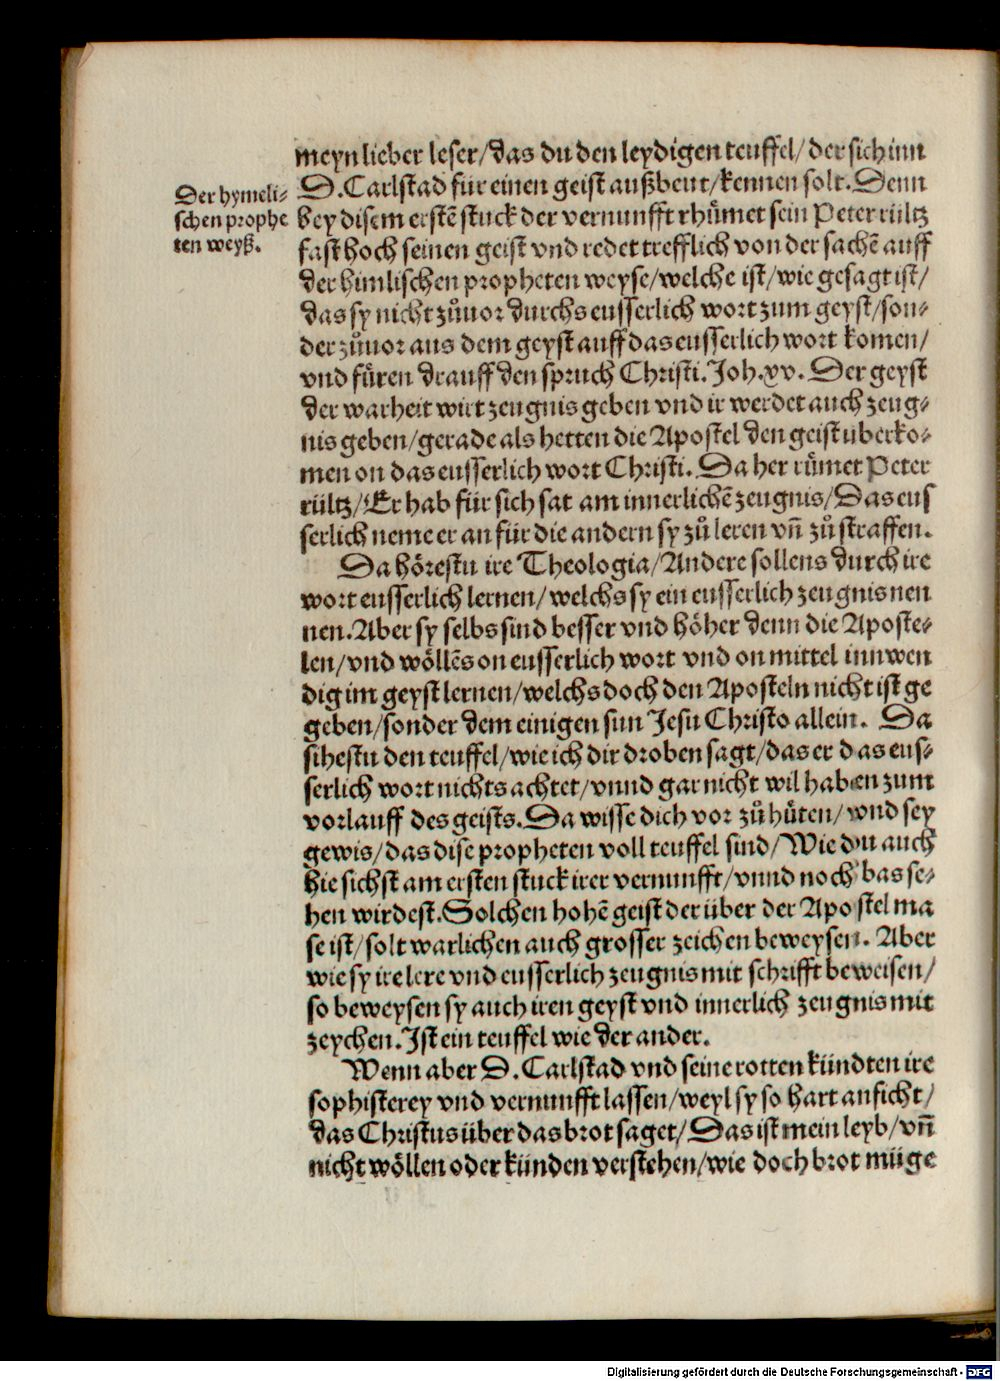 meyn lieber leser/das du den leydigen teuffel/ der sich inn
D.Carlstad für einen geist außbeut/kennen solt.Denn
Der hymeli-
schen prophe
ten weyß.
bey disem erstē stuck der vernunfft rhůmet sein Peter rültz
fast hoch seinen geist vnd redet trefflich von der sachē auff
der himlischen propheten weyse/welche ist/wie gesagt ist/
das sy nicht zůuor durchs eusserlich wort zum geyst/son-
der zůuor aus dem geyst auff das eusserlich wort komen/
vnd füren drauff den spruch Christi.Joh.xv. Der geyst
der warheit wirt zeugnis geben vnd ir werdet auch zeug-
nis geben/gerade als hetten die Apostel den geist uberko-
men on das eusserlich wort Christi. Da her růmet Peter
rültz/Er hab für sich sat am innerlichē zeugnis/Das eus
serlich neme er an für die andern sy zů leren vn̄ zů straffen.
Da hôrestu ire Theologia/Andere sollens durch ire
wort eusserlich lernen/welchs sy ein eusserlich zeugnis nen
nen.Aber sy selbs sind besser vnd hôher denn die Aposte-
len/vnd wôllēs on eusserlich wort vnd on mittel innwen
dig im geyst lernen/welchs doch den Aposteln nicht ist ge
geben/sonder dem einigen sun Jesu Christo allein. Da
sihestu den teuffel/wie ich dir droben sagt/das er das eus-
serlich wort nichts achtet/vnnd gar nicht wil haben zum
vorlauff des geists.Da wisse dich vor zů hůten/ vnd sey
gewis/das dise propheten voll teuffel sind/Wie du auch
hie sichst am ersten stuck irer vernunfft/vnnd noch bas se-
hen wirdest.Solchen hohē geist der über der Apostel ma
se ist/solt warlichen auch grosser zeichen beweysen. Aber
wie sy ire lere vnd eusserlich zeugnis mit schrifft beweisen/
so beweysen sy auch iren geyst vnd innerlich zeugnis mit
zeychen.Ist ein teuffel wie der ander.
Wenn aber D.Carlstad vnd seine rotten kündten ire
sophisterey vnd vernunfft lassen/weyl sy so hart anficht/
das Christus über das brot saget/Das ist mein leyb/vn̄
nicht wôllen oder künden verstehen/wie doch brot müge
Digitalisierung gefördert durch die Deutsche Forschungsgemeinschaft - DFG